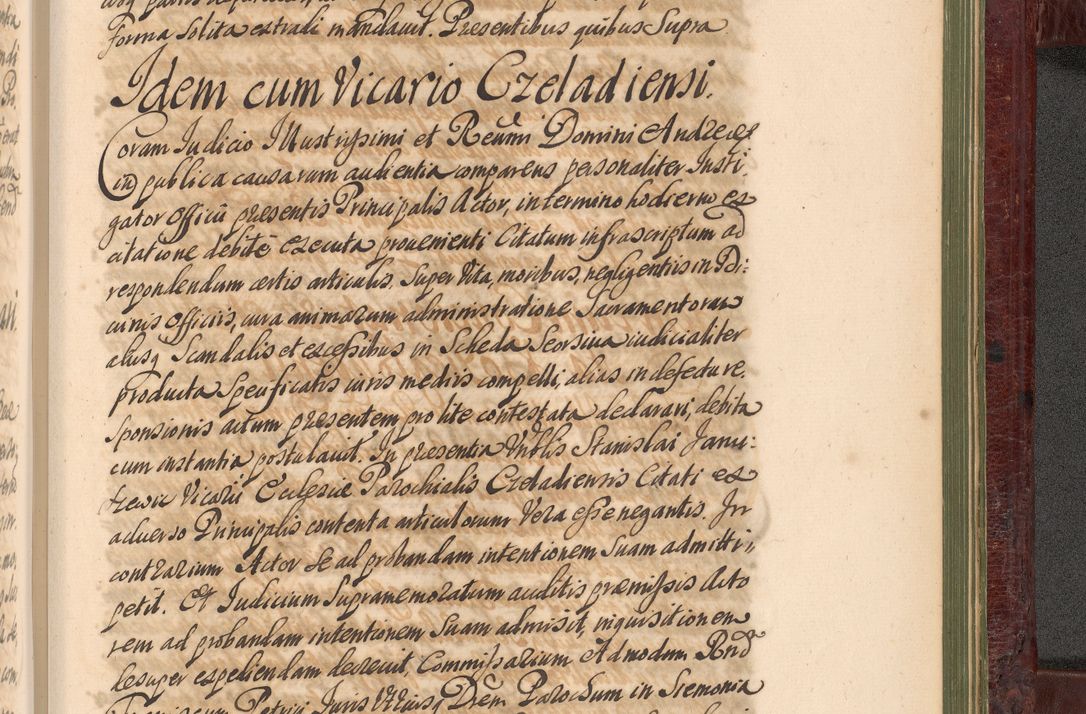 forma solita extradi mandavit. Presentibus quibus Supra
Idem cum Vicario Czeladiensi.
Coram Judicio Illustrissimi et Reūmi Domini Andreæ
in publica causarum audientia comparens personaliter Insti,
gator Officii presentis Principalis Actor, in termino hodierno ex
citatione debite executa provenienti Citatum infrascriptum ad
respondendum certis articulis. Super Vita, moribus, negligentiis in Di:
vinis Officiis, cura animarum administratione Sacramentorum
aliisq Scandalis et excessibus in Scheda Seorsiva iudicialiter
producta Specificatis iuris mediis compelli, alias in defectu re,
sponsionis actum presentem pro lite contestata declarari, debita
cum instantia postulavit. In presentia Vnblis Stanislai Janu:
szewic Vicarii Ecclesiæ Parochialis Czeladiensis Citati ex
adverso Principalis contenta articulorum Vera esse negantis. In
contrarium Actor se ad probandam intentionem Suam admitti,
petit. Et Judicium Supramemoratum auditis præmissis Acto
rem ad probandam intentionem Suam admisit, inquisitionem
desuper expediendam decrevit, Commissarium Admodum Rnd
Petrici Juris Vtriusq Dēm Parochum in Siemonia